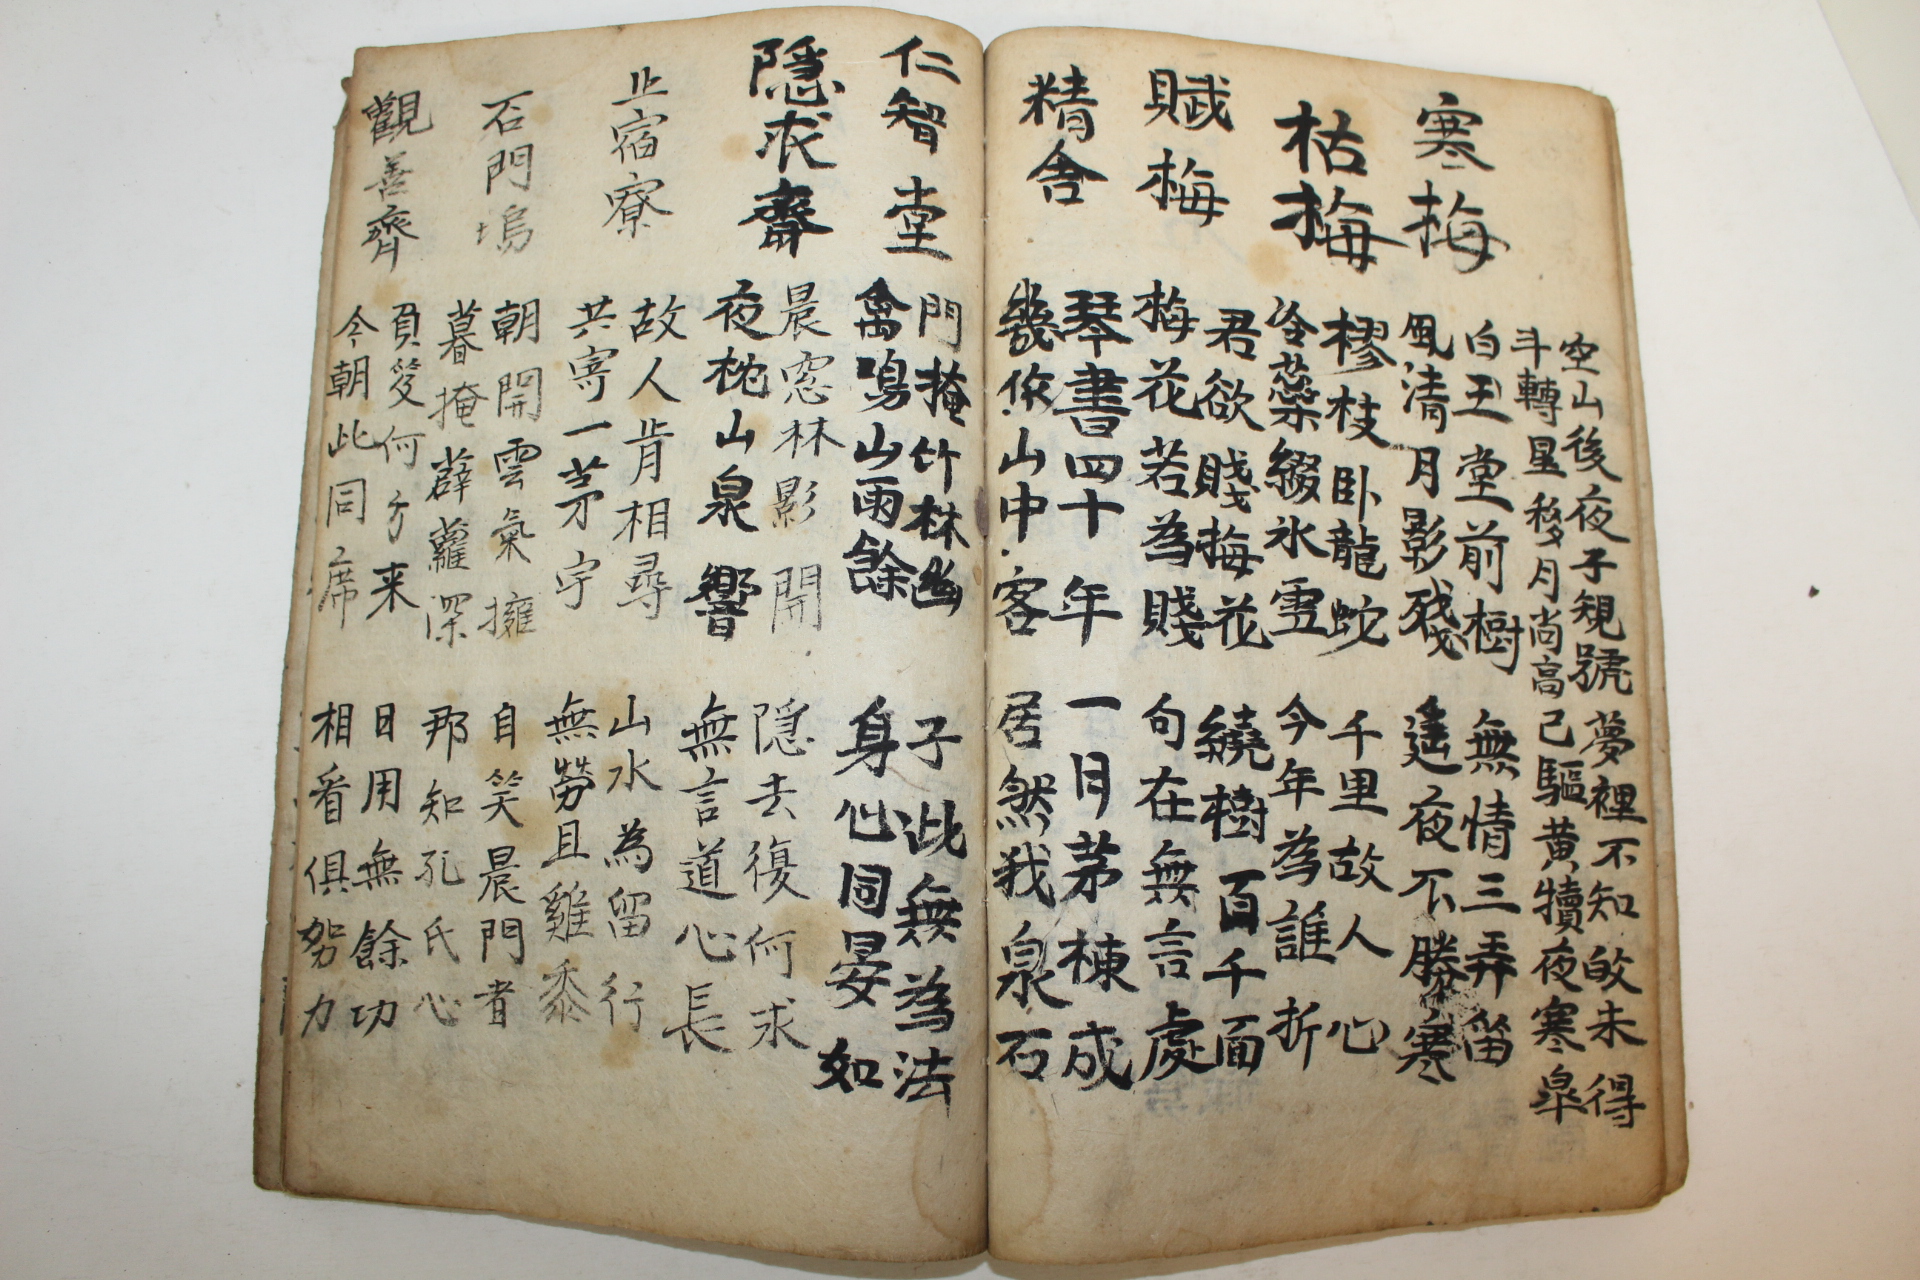 空山後夜子規號 夢裡不知皈未得
斗轉星移月尚高 已驅黃犢夜寒皐
寒梅
白玉堂前樹 無情三弄笛
風清月影殘 遙夜不勝寒
枯梅
樛枝卧龍蛇 千里故人心
冷蘂綴氷雪 今年為誰折
賦梅
君欲賤梅花 繞樹百千面
梅花若為賤 句在無言處
精舍
琴書四十年 一月茅棟成
幾作山中客 居然我泉石
仁智堂
門掩竹林幽 子此無為法
禽鳴山雨餘 身心同晏如
隱求齋
晨窓林影開 隱去復何求
夜枕山泉響 無言道心長
止宿寮
故人肯相尋 山水為留行
共寄一茅宇 無勞且雞黍
石門塢
朝開雲氣擁 自笑晨門者
暮掩薜蘿深 那知孔氏心
觀善齊
負笈何方来 日用無餘功
今朝此同席 相看俱努力